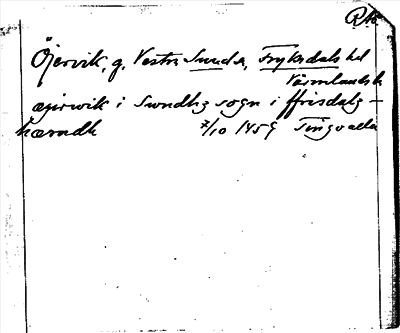 RA
Öjervik, g. Västra Sunds sn, Fryksdals hd
Värmlands l
øyirwik i Swndhz sogn i ffrisdalz-
hærradh 7/10 1459 Tingvalla